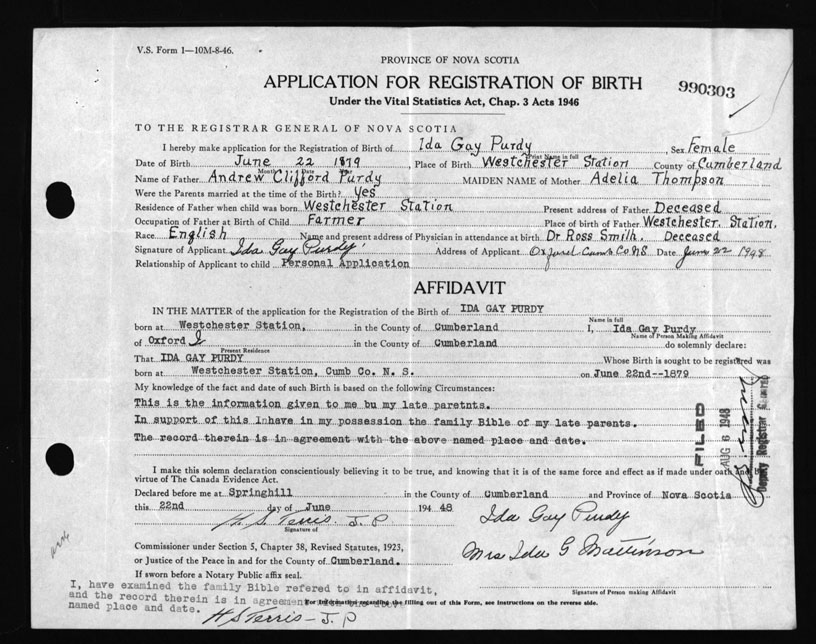 V.S. Form 1—10M-8-46.
PROVINCE OF NOVA SCOTIA
APPLICATION FOR REGISTRATION OF BIRTH
990303
Under the Vital Statistics Act, Chap. 3 Acts 1946
TO THE REGISTRAR GENERAL OF NOVA SCOTIA
I hereby make application for the Registration of Birth of Ida Gay Purdy, Sex Female
Print Name in full
Date of Birth June 22 1879, Place of Birth Westchester Station County of Cumberland
Month Date
Name of Father Andrew Clifford Purdy MAIDEN NAME of Mother Adelia Thompson
Were the Parents married at the time of the Birth? Yes
Residence of Father when child was born Westchester Station Present address of Father Deceased
Occupation of Father at Birth of Child Farmer Place of birth of Father Westchester Station,
Race English Name and present address of Physician in attendance at birth Dr Ross Smith. Deceased
Signature of Applicant Ida Gay Purdy Address of Applicant Oxford Cumb Co NS Date June 22 1948
Relationship of Applicant to child Personal Application
AFFIDAVIT
IN THE MATTER of the application for the Registration of the Birth of IDA GAY PURDY
Name in full
born at Westchester Station, in the County of Cumberland I, Ida Gay Purdy
Name of Person Making Affidavit
of Oxford in the County of Cumberland do solemnly declare:
Present Residence
That IDA GAY PURDY Whose Birth is sought to be registered was
born at Westchester Station, Cumb Co. N. S. on June 22nd--1879
My knowledge of the fact and date of such Birth is based on the following Circumstances:
This is the information given to me bu my late paretnts.
In support of this Inhave in my possession the family Bible of my late parents.
The record therein is in agreement with the above named place and date.
FILED
AUG 6 1948
Deputy Registrar General
I make this solemn declaration conscientiously believing it to be true, and knowing that it is of the same force and effect as if made under oath and by
virtue of The Canada Evidence Act.
Declared before me at Springhill in the County of Cumberland and Province of Nova Scotia
this 22nd day of June 1948
H. S. Terris. J. P.
Signature of
Ida Gay Purdy
Mrs Ida G Mattinson
Commissioner under Section 5, Chapter 38, Revised Statutes, 1923,
or Justice of the Peace in and for the County of Cumberland.
If sworn before a Notary Public affix seal.
Signature of Person making Affidavit
I, have examined the family Bible refered to in affidavit,
and the record therein is in agreement
For Information regarding the filling out of this Form, see instructions on the reverse side.
named place and date. H S Terris - J. P